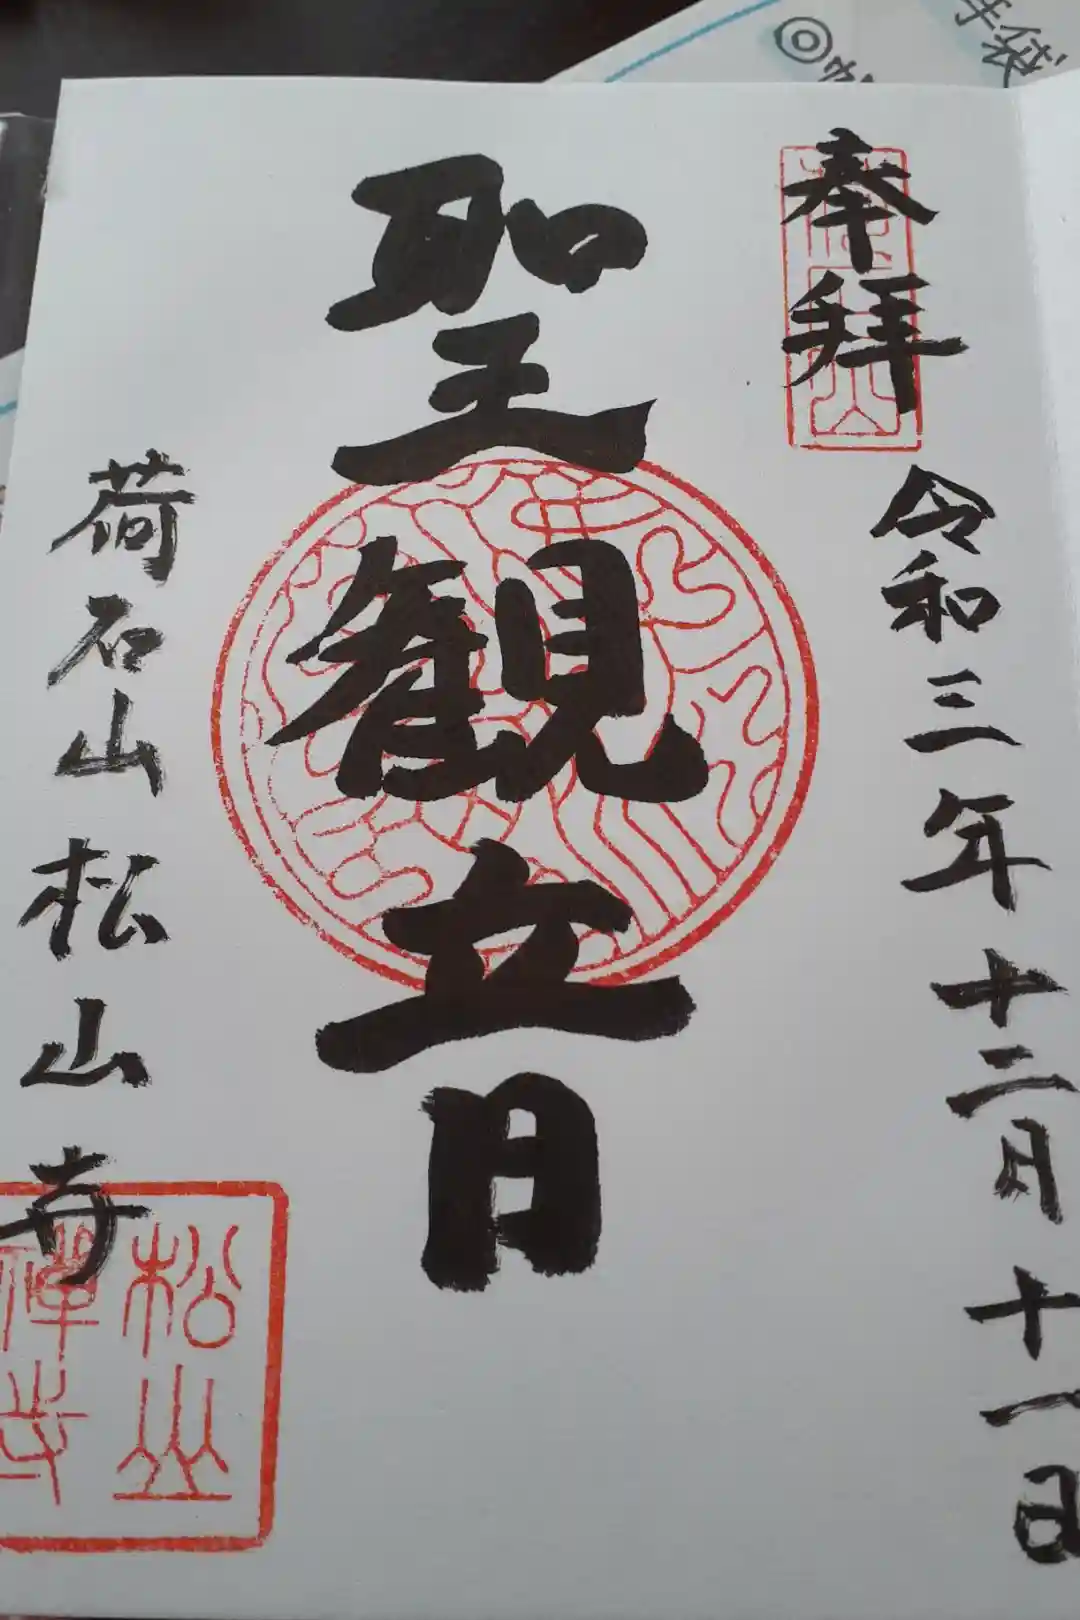 奉拝
令和三年十二月十一日
聖観立月
荷石山松山寺
松山
禅寺
手袋